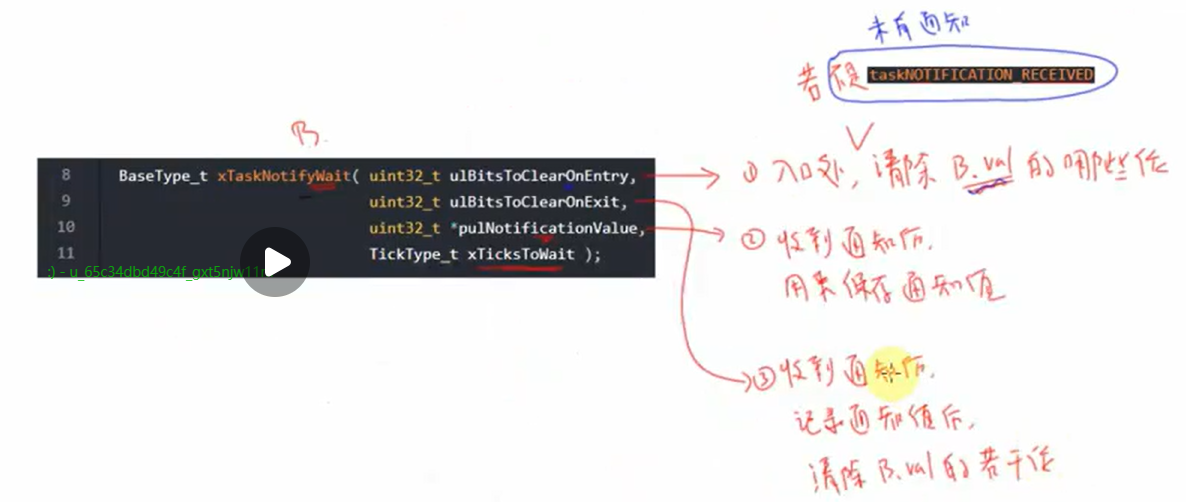 未有通知
若不是 taskNOTIFICATION_RECEIVED
B.
8 BaseType_t xTaskNotifyWait( uint32_t ulBitsToClearOnEntry,
9 uint32_t ulBitsToClearOnExit,
10 uint32_t *pulNotificationValue,
11 TickType_t xTicksToWait );
;) - u_65c34dbd49c4f_gxt5njw11r
① 入口处, 清除 B.val 的哪些位
② 收到通知后,
用来保存通知值
③ 收到通知后,
记录通知值后,
清除 B.val 的若干位